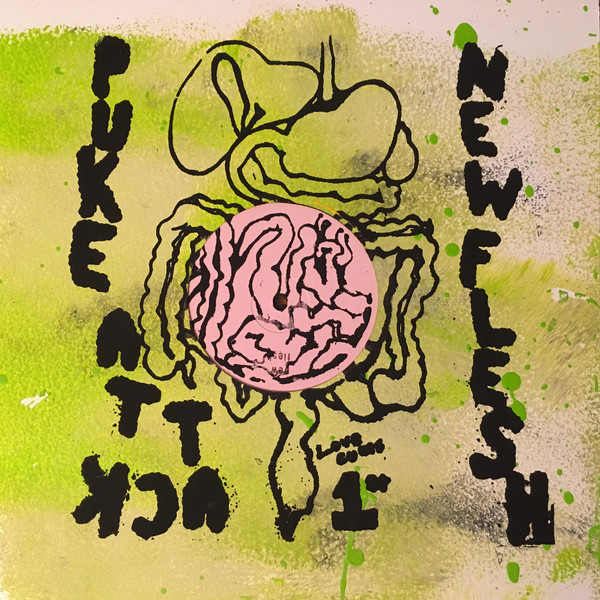 PUKE ATTACK
NEW FLESH
LOVE
1